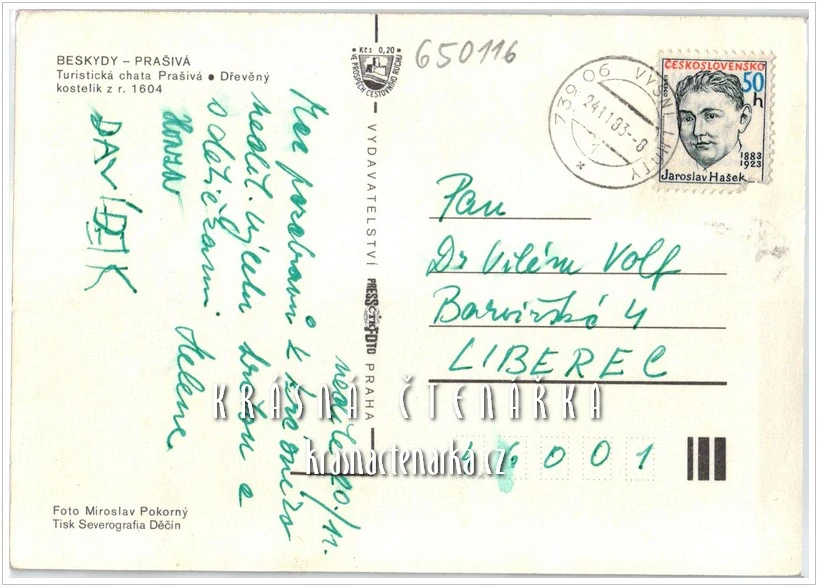 BESKYDY – PRAŠIVÁ
Turistická chata Prašivá ● Dřevěný
kostelík z r. 1604
Kčs 0,20
VE PROSPĚCH CESTOVNÍHO RUCHU
650116
739 06 VYŠNÍ LHOTY
24.11.83-8
1
ČESKOSLOVENSKO
50 h
1883
1923
Jaroslav Hašek
neděle 20./11.
Moc pozdravů z krásného
neděl. výletu
s dětičkami Helena
HONZA
DAVÍDEK
VYDAVATELSTVÍ PRESSFOTO PRAHA
ČTK
Pan
Dr Vilém Volf
Barvířská 4
LIBEREC
46001
KRÁSNÁ ČTENÁŘKA
krasnactenarka.cz
Foto Miroslav Pokorný
Tisk Severografia Děčín